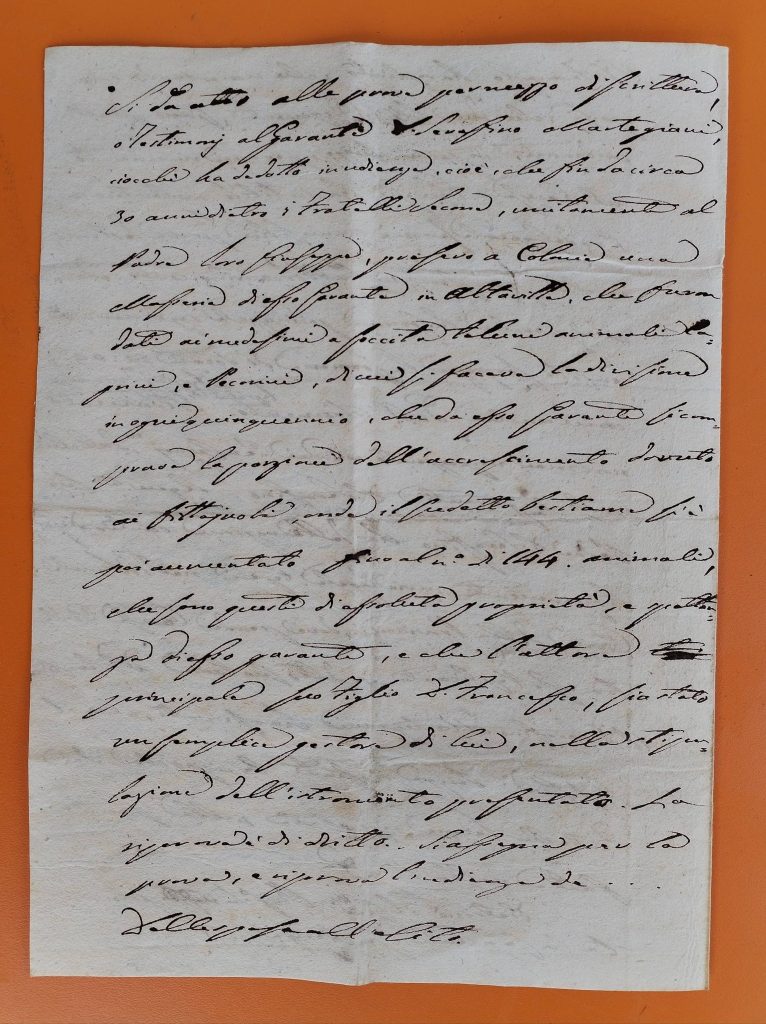 Si da atto alle prove per mezzo di scrittura,
o Testimonj al Garante D. Serafino Martegiani,
ciocchè ha dedotto in udienza, cioè, che fin da circa
30 anni dietro i Fratelli Secone, unitamente al
Padre loro Giuseppe, presero a Colonia una
Masseria di esso Garante in Altavilla, che furon
dati ai medesimi a soccita taluni animali ca=
prini, e Pecorini, di cui si faceva la divisione
in ogni quinquennio, che da esso Garante si com=
prava la porzione dell'accrescimento dovuto
ai fittajuoli, onde il sudetto bestiame si è
poi aumentato fino al n.º di 144. animali,
che sono questi di assoluta proprietà, e spettan=
za di esso garante, e che l'attore
principale suo Figlio D. Francesco, sia stato
un semplice gestore di lui, nella stipu=
lazione dell'istromento presentato. La
riprova è di dritto. Si assegna per la
prova, e riprova l'udienza de ...
Delle spese nell'esito.